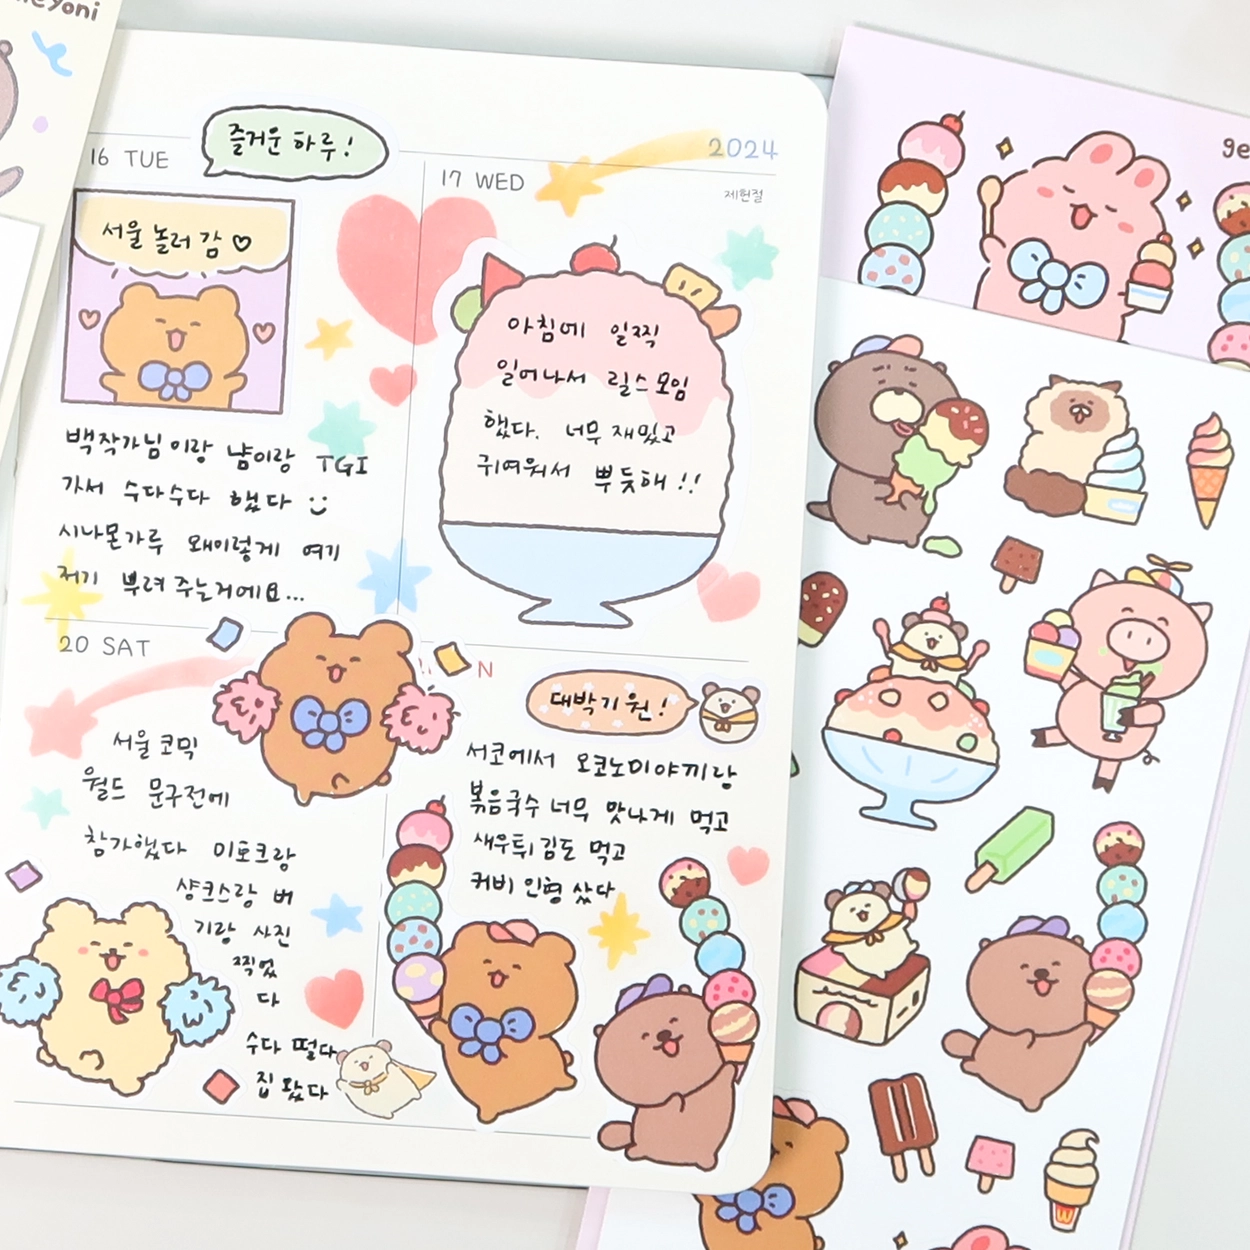 yoni
16 TUE
즐거운 하루!
서울 놀러 감 ♡
백작가님이랑 냠이랑 TGI
가서 수다수다 했다 :)
시나몬가루 왜이렇게 여기
저기 뿌려주는거에요...
17 WED
2024
제헌절
아침에 일찍
일어나서 릴스모임
했다. 너무 재밌고
귀여워서 뿌듯해!!
20 SAT
서울 코믹
월드 문구전에
참가했다 미호크랑
샹크스랑 버
기랑 사진
찍었
다
수다 떨다
집 왔다
N
대박기원!
서코에서 오코노미야끼랑
볶음국수 너무 맛나게 먹고
새우튀김도 먹고
커비 인형 샀다
ge